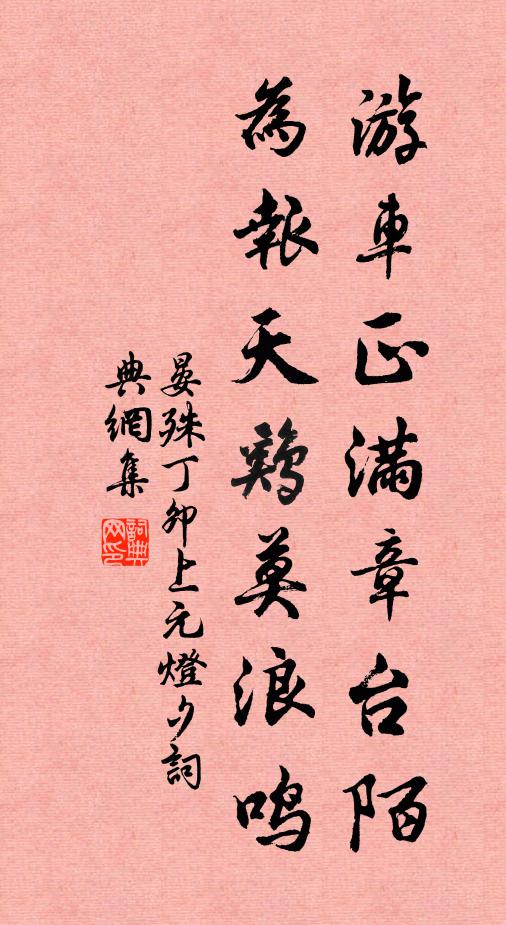 游車正滿章台陌
為報天鷄莫浪鳴
晏殊丁卯上元燈夕詞
典網集
詞典
网印